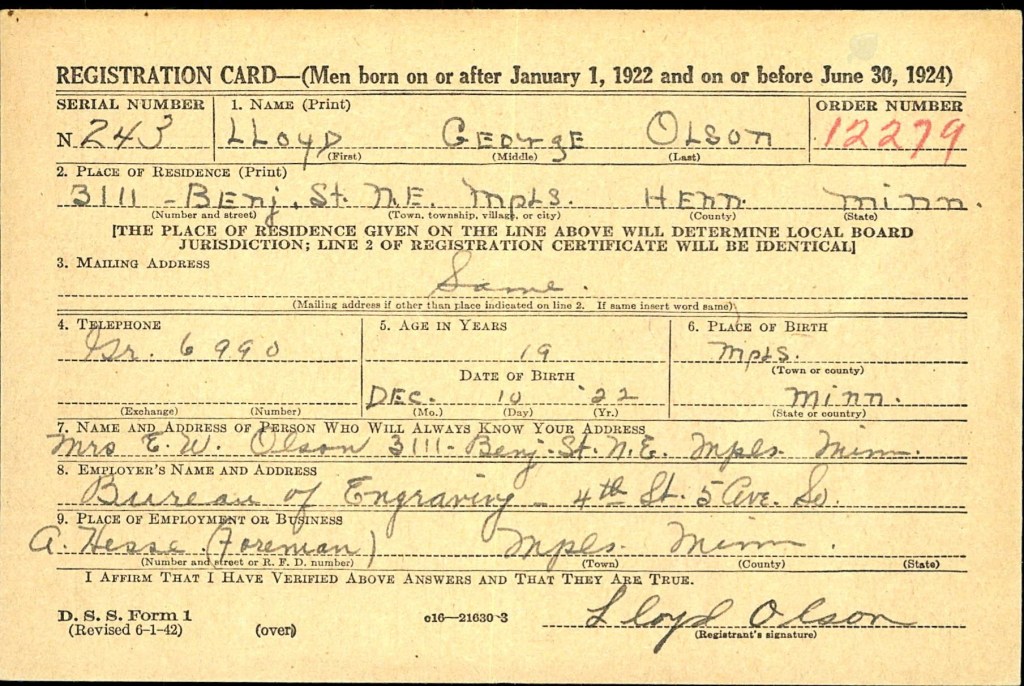 REGISTRATION CARD—(Men born on or after January 1, 1922 and on or before June 30, 1924)
SERIAL NUMBER 1. NAME (Print) ORDER NUMBER
N 243 LLOYD GEORGE OLSON 12279
(First) (Middle) (Last)
2. PLACE OF RESIDENCE (Print)
3111 - BENJ. ST. N.E. MPLS. HENN. MINN.
(Number and street) (Town, township, village, or city) (County) (State)
[THE PLACE OF RESIDENCE GIVEN ON THE LINE ABOVE WILL DETERMINE LOCAL BOARD
JURISDICTION; LINE 2 OF REGISTRATION CERTIFICATE WILL BE IDENTICAL]
3. MAILING ADDRESS
Same.
(Mailing address if other than place indicated on line 2. If same insert word same)
4. TELEPHONE 5. AGE IN YEARS 6. PLACE OF BIRTH
Gr. 6990 19 MPLS.
(Town or county)
DATE OF BIRTH
DEC. 10 '22 MINN.
(Exchange) (Number) (Mo.) (Day) (Yr.) (State or country)
7. NAME AND ADDRESS OF PERSON WHO WILL ALWAYS KNOW YOUR ADDRESS
Mrs E. W. Olson 3111 - Benj. St. N.E. Mpls. Minn.
8. EMPLOYER'S NAME AND ADDRESS
Bureau of Engraving - 4th St. 5 Ave. So.
9. PLACE OF EMPLOYMENT OR BUSINESS
A. Hesse (Foreman) Mpls. Minn.
(Number and street or R. F. D. number) (Town) (County) (State)
I AFFIRM THAT I HAVE VERIFIED ABOVE ANSWERS AND THAT THEY ARE TRUE.
D. S. S. Form 1
(Revised 6-1-42) (over) c16—21630-3 Lloyd Olson
(Registrant's signature)